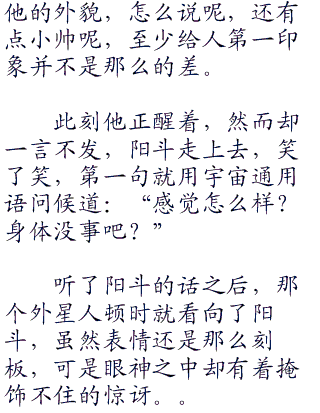 他的外貌，怎么说呢，还有
点小帅呢，至少给人第一印
象并不是那么的差。
此刻他正醒着，然而却
一言不发，阳斗走上去，笑
了笑，第一句就用宇宙通用
语问候道：“感觉怎么样？
身体没事吧？”
听了阳斗的话之后，那
个外星人顿时就看向了阳
斗，虽然表情还是那么刻
板，可是眼神之中却有着掩
饰不住的惊讶。。